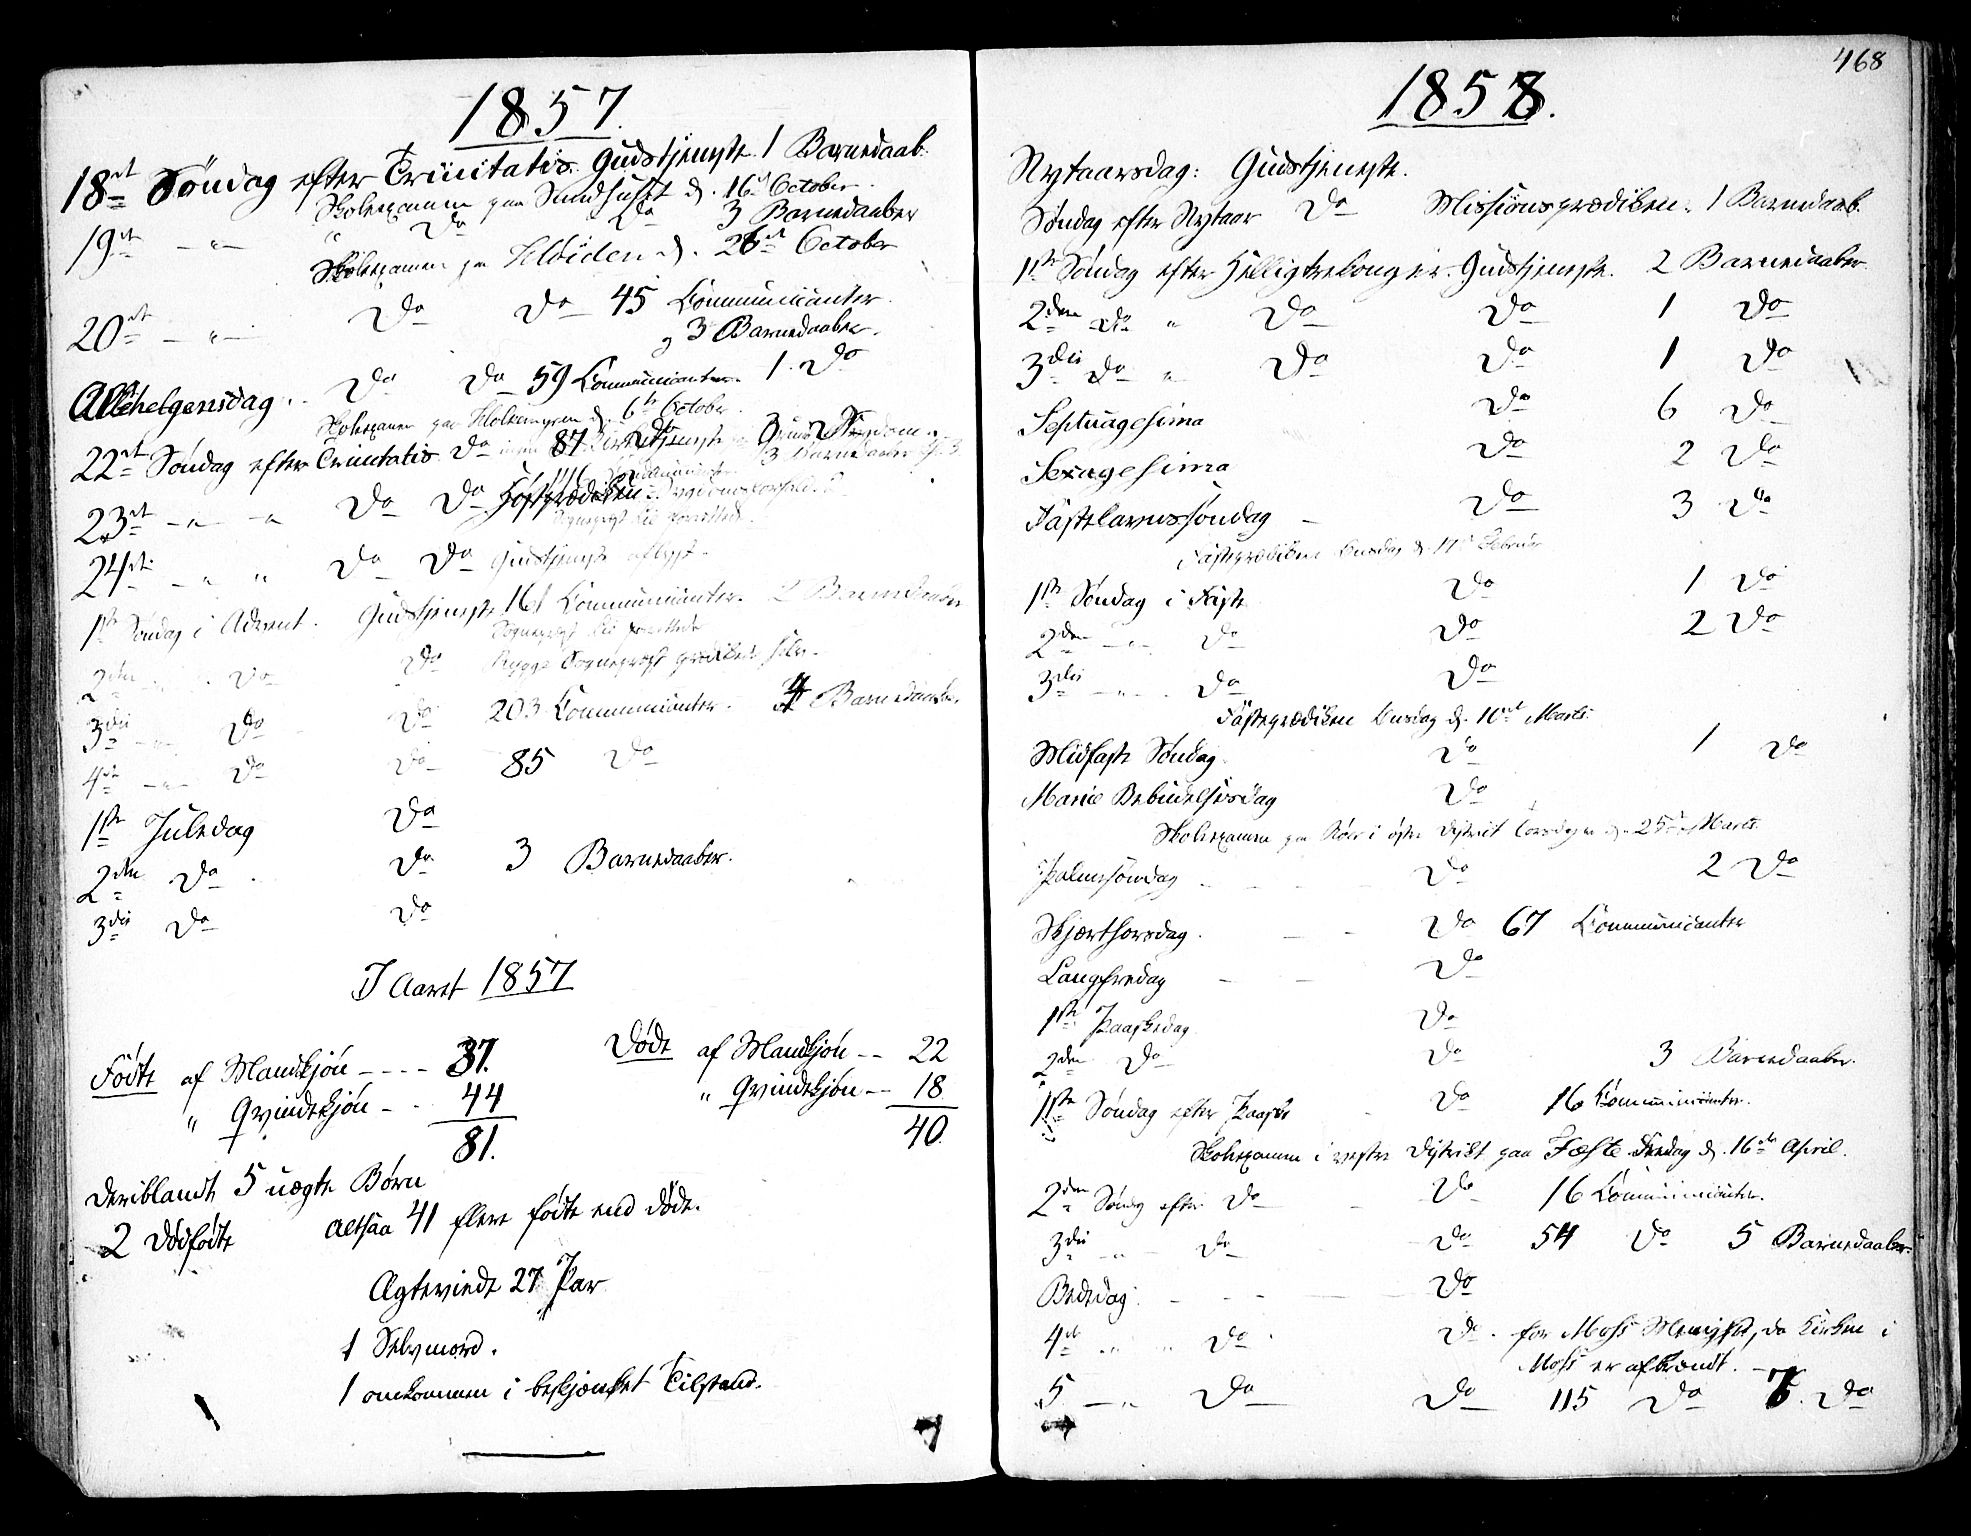 1857.
18de Søndag efter Trinitatis. Gudstjeneste. 1 Barnedaab.
Skoleexamen paa Sundhuset d. 16de October.
19de — " — " Do Do 3 Barnedaaber
Skoleexamen paa Høiden d. 26de October
20de — " — Do Do 45 Communicanter
og 3 Barnedaaber.
Allehelgensdag. Do Do 59 Communicanter. 1. Do
Skoleexamen paa d. 6te October
22de Søndag efter Trinitatis Do 87
3 Barnedaaber
23de — " — " Do Do Høstprædiken
24de — " " Do Do Gudstjeneste aflyst.
1ste Søndag i Advent. Gudstjeneste 161 Communicanter. 2 Barnedaaber
2den Do Do Rygge Sognepræst prædikede selv.
3die — " — Do Do 203 Communicanter. 4 Barnedaaber.
4de — " — Do Do 85 Do
1ste Juledag Do
2den Do Do 3 Barnedaaber.
3die Do Do
I Aaret 1857
Fødte af Mandkjøn - - - - 37.
" Qvindekjøn - - 44
81.
Døde af Mandkjøn - - 22
" Qvindekjøn - - 18
40.
Deriblandt 5 uægte Børn
2 Dødfødte altsaa 41 flere fødte end døde.
Ægteviede 27 Par
1 Selvmord.
1 omkommen i beskjænket Tilstand.
468
1858.
Nytaarsdag: Gudstjeneste.
Søndag efter Nytaar Do Missionsprædiken. 1 Barnedaab.
1ste Søndag efter Helligtrekonger. Gudstjeneste. 2 Barnedaaber
2den Do " Do Do 1 Do
3die Do " Do Do 1 Do
Septuagesima Do 6 Do
Sexagesima Do 2 Do
Fastelavnssøndag — Do 3 Do
Fasteprædiken Onsdag d. Februar
1ste Søndag i Faste Do 1 Do
2den — " — Do Do 2 Do
3die — " — Do Do
Fasteprædiken Onsdag d. 10de Marts.
Midfaste Søndag Do 1 Do
Mariæ Bebudelsesdag Do
Skoleexamen paa i østre District Torsdagen d. 25de Marts
Palmesøndag Do 2 Do
Skjærthorsdag. Do 67 Communicanter
Langfredag Do
1ste Paaskedag Do
2den Do Do 3 Barnedaaber.
1ste Søndag efter Paaske Do 16 Communicanter.
Skoleexamen i vestre District paa Fæste Fredag d. 16de April.
2den Søndag efter Do Do 16 Communicanter.
3die " Do Do 54 Do 5 Barnedaaber
Bededag. Do
4de " " Do Do. for Moss Menighed, da Kirken i
Moss er afbrændt.
5 — " — Do Do 115 Do 7. Do